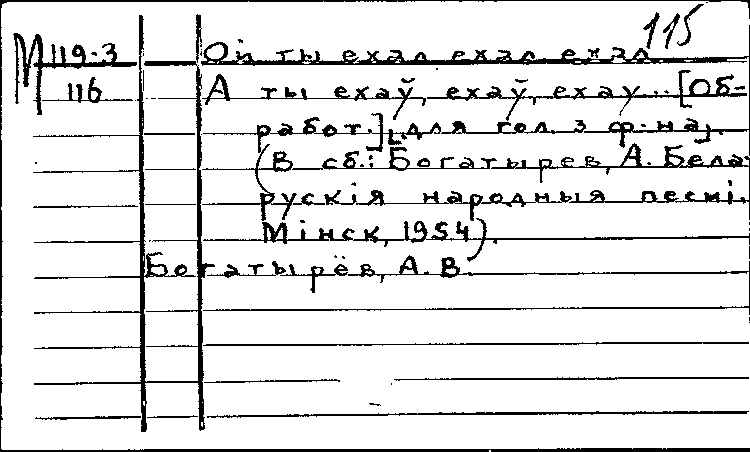 115
М 119-3 Ой ты ехал ехал ехал
116 А ты ехаў, ехаў, ехау... [Об-
работ.] [для гол. з ф-на].
(В сб.: Богатырев, А. Бела-
рускія народныя песні.
Мінск, 1954).
Богатырёв, А. В.